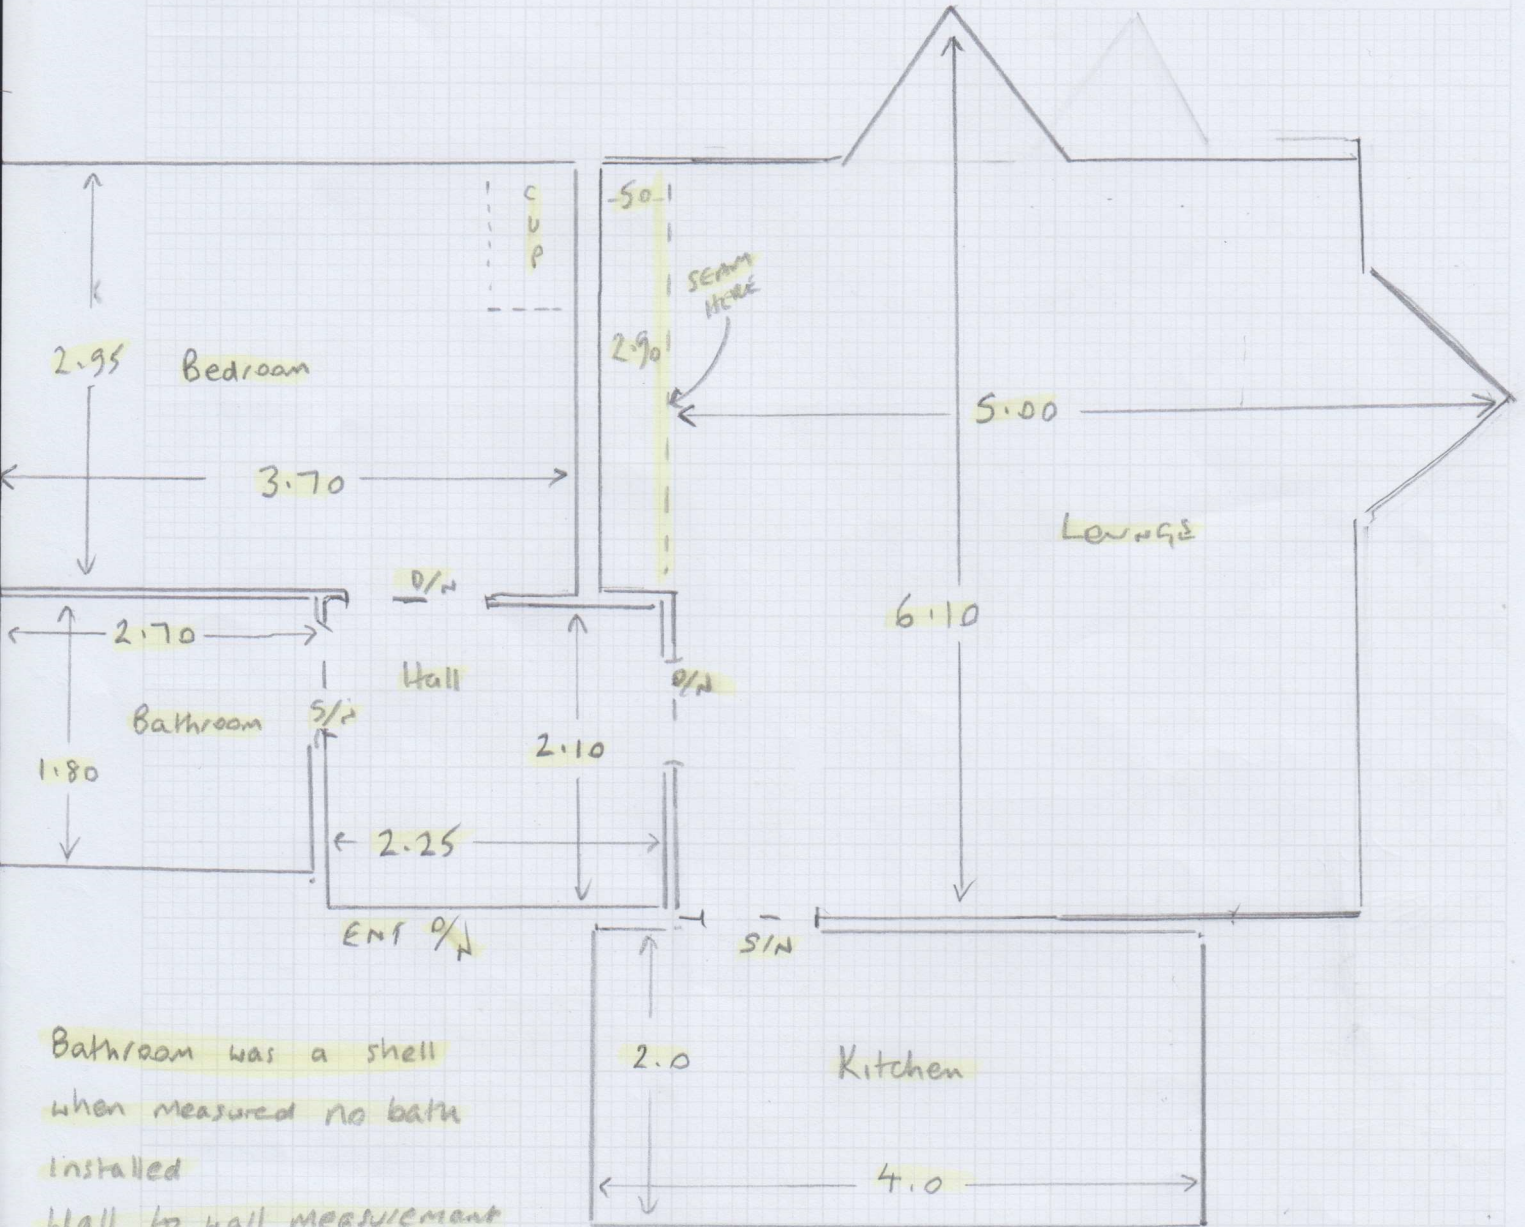 CUP
.50
SEAM
HERE
2.90
2.95
Bedroom
5.00
3.70
Lounge
D/N
6.10
2.70
Hall
D/N
Bathroom
S/N
2.10
1.80
2.25
ENT D/N
S/N
Bathroom was a shell
when measured no bath
Installed
Wall to wall measurement
2.0
Kitchen
4.0